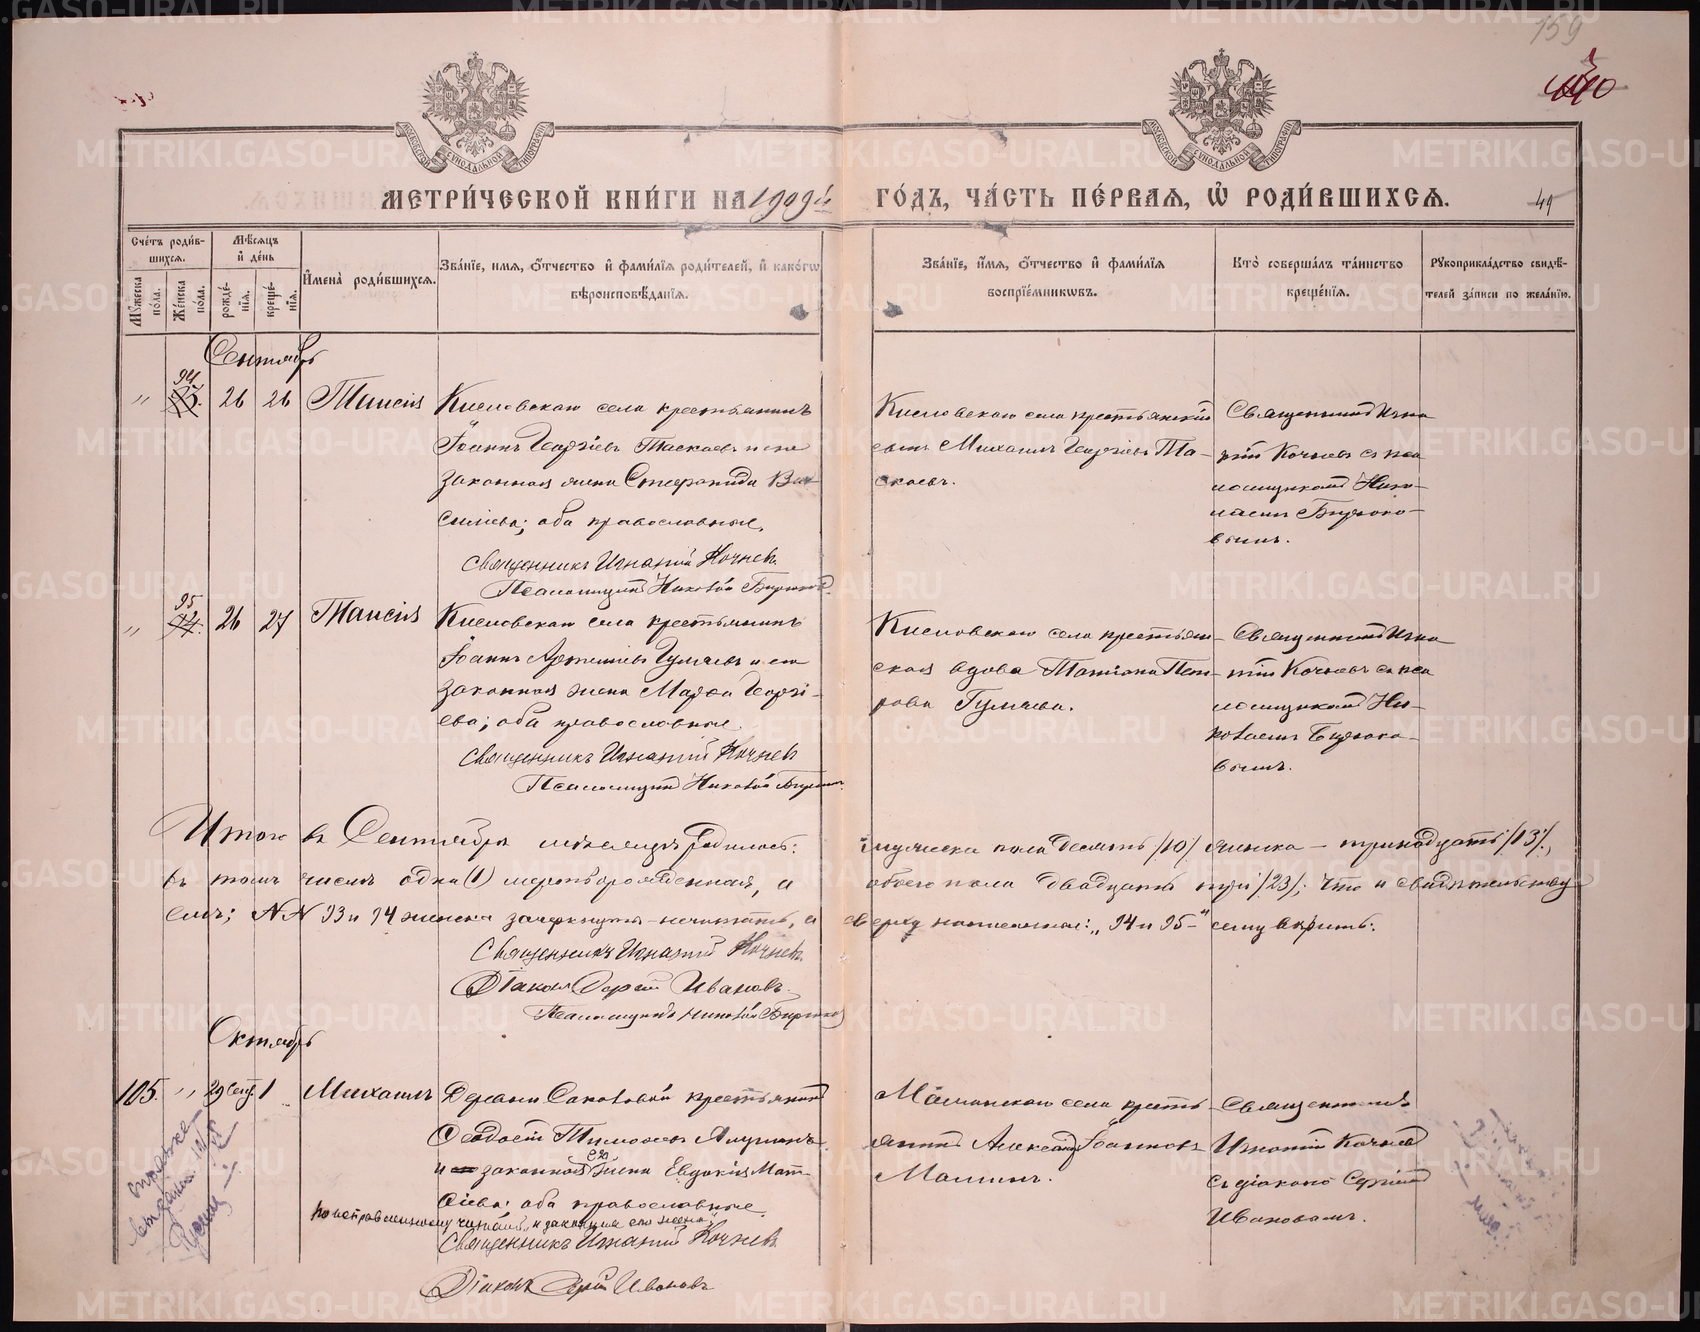 159
МЕТРИ́ЧЕСКОЙ КНИ́ГИ НА 1909й
ГО́ДЪ, ЧА́СТЬ ПЕ́РВАЯ, Ѡ РОДИ́ВШИХСЯ.
49
Сче́тъ роди́в-
шихся.
Мѣ́сяцъ
и де́нь
Му́жеска
по́ла.
Же́нска
по́ла.
рожде́-
нія.
креще́-
нія.
Имена̀ роди́вшихся.
Зва́ніе, имя, о́тчество и фами́лія роди́телей, и како́гѡ
вѣроисповѣ́данія.
Зва́ніе, и́мя, о́тчество и фами́лія
воспріе́мникѡвъ.
Кто̀ соверша́лъ та́инство
креще́нія.
Рукоприкла́дство свидѣ́-
телей за́писи по жела́нію.
Сентябрь
94
" 93. 26 26 Таисія
Кисловскаго села крестьянинъ
Іоаннъ Георгіевъ Таскаевъ и его
законная жена Стефанида Ва-
сильева; оба православные.
Священникъ Игнатій Кочневъ.
Псаломщикъ Николай Бирюковъ.
Кисловскаго села крестьянскій
сынъ Михаилъ Георгіевъ Та-
скаевъ.
Священникъ Игна-
тій Кочневъ съ пса
ломщикомъ Нико-
лаемъ Бирюко-
вымъ.
95
" 94. 26 27 Таисія
Кисловскаго села крестьянинъ
Іоаннъ Артемьевъ Гуляевъ и его
законная жена Марѳа Георгі-
ева; оба православные.
Священникъ Игнатій Кочневъ
Псаломщикъ Николай Бирюковъ.
Кисловскаго села крестьян-
ская вдова Татіана Пет-
рова Гуляева.
Священникъ Игна
тій Кочневъ съ пса
ломщикомъ Ни-
колаемъ Бирюко-
вымъ.
Итого въ Сентябрѣ мѣсяцѣ родилось: мужеска пола десять /10/ женска – тринадцать /13/,
въ томъ числѣ одна (1) мертворожденная, а обоего пола двадцать три /23/; что и свидѣтельству
емъ; NN 93 и 94 женска зачеркнуты – нечитать, а сверху написанное: „94 и 95" – сему вѣрить.
Священникъ Игнатій Кочневъ.
Діаконъ Сергій Ивановъ.
Псаломщикъ Николай Бирюковъ
Октябрь
105. " 29 Сент. 1 Михаилъ
Деревни Саковой крестьянинъ
Ѳеодосій Тимоѳеевъ
и законная его жена Евдокія Мат-
ѳіева; оба православные.
по исправленному читать „и законная его жена"
Священникъ Игнатій Кочневъ.
Діаконъ Сергій Ивановъ
Маминскаго села кресть
янинъ Александръ Іоанновъ
Маминъ.
Священникъ
Игнатій Кочневъ
съ діакономъ Сергіемъ
Ивановымъ.
METRIKI.GASO-URAL.RU